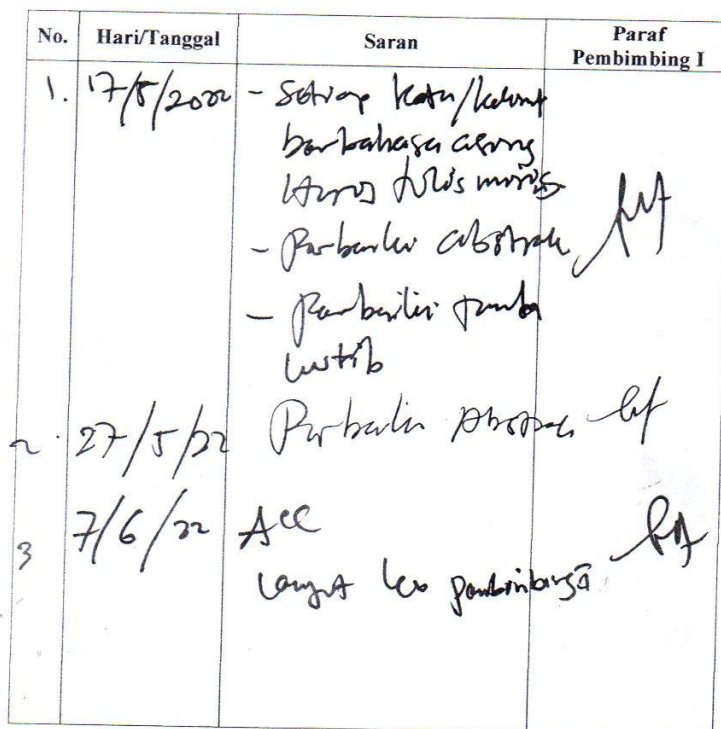 No. Hari/Tanggal Saran Paraf Pembimbing I
1. 17/5/2022 - Setiap kata/kalimat
berbahasa asing
harus tulis miring
- Perbaiki abstrak
- Perbaiki tanda
kutip
2. 27/5/22 Perbaiki Abstrak
3 7/6/22 Acc
Lanjut ke pembimbing